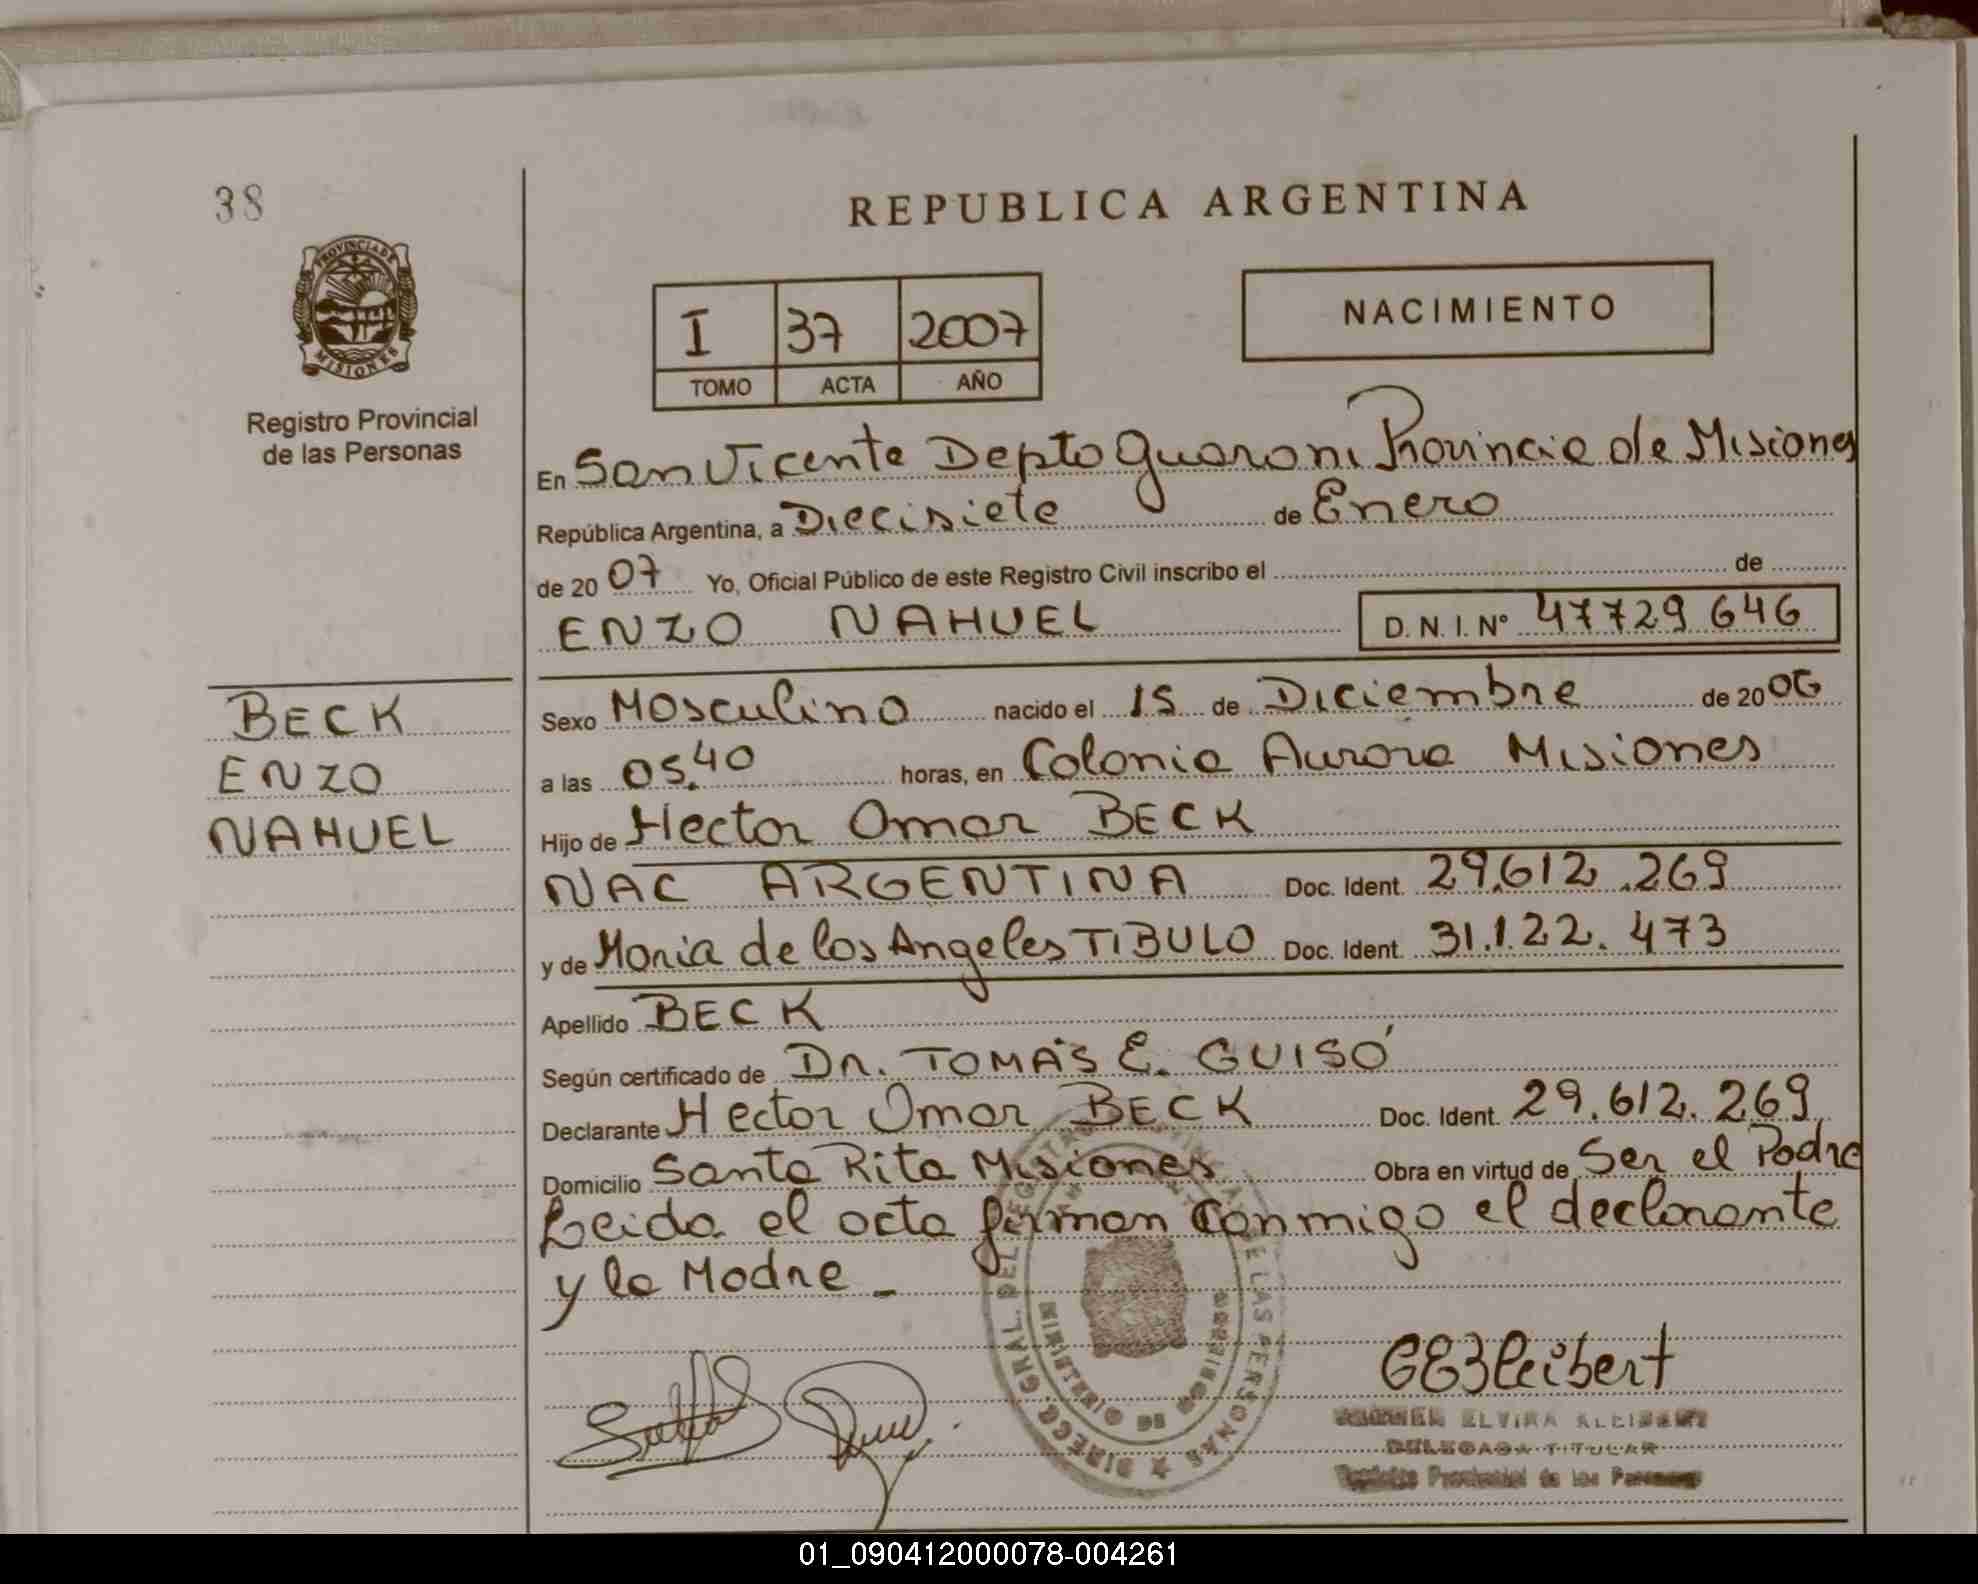 38
REPUBLICA ARGENTINA
PROVINCIA DE
MISIONES
Registro Provincial
de las Personas
I 37 2007
TOMO ACTA AÑO
NACIMIENTO
En San Vicente Depto Guarani Provincia de Misiones
República Argentina, a Diecisiete de Enero
de 2007 Yo, Oficial Público de este Registro Civil inscribo el de
ENZO NAHUEL D. N. I. Nº 47729646
BECK
ENZO
NAHUEL
Sexo Masculino nacido el 15 de Diciembre de 2006
a las 05.40 horas, en Colonia Aurora Misiones
Hijo de Hector Omar BECK
NAC ARGENTINA Doc. Ident. 29.612.269
y de Maria de los Angeles TIBULO Doc. Ident. 31.122.473
Apellido BECK
Según certificado de Dr. TOMÁS E. GUISÓ
Declarante Hector Omar BECK Doc. Ident. 29.612.269
Domicilio Santa Rita Misiones Obra en virtud de Ser el Padre
Leida el acta firman conmigo el declarante
y la Madre_
DIRECC. GRAL. DEL REGISTRO PROVINCIAL DE LAS PERSONAS
ELVIRA
DELEGADA TITULAR
Registro Provincial de las Personas
01_090412000078-004261